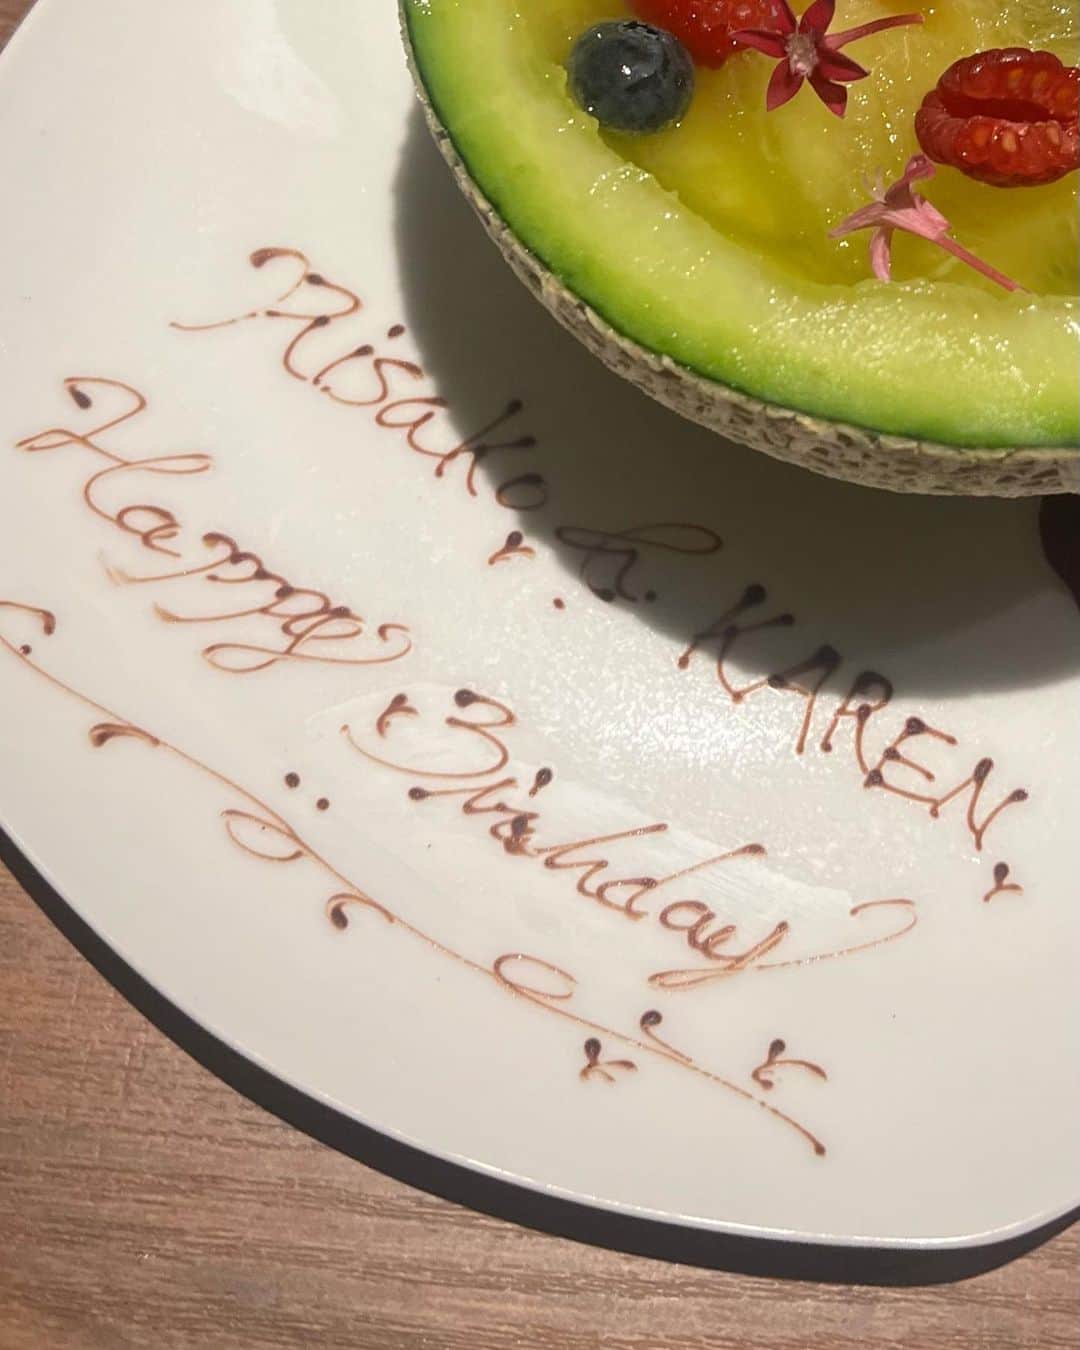 Risako KAREN
Happy
Birthday